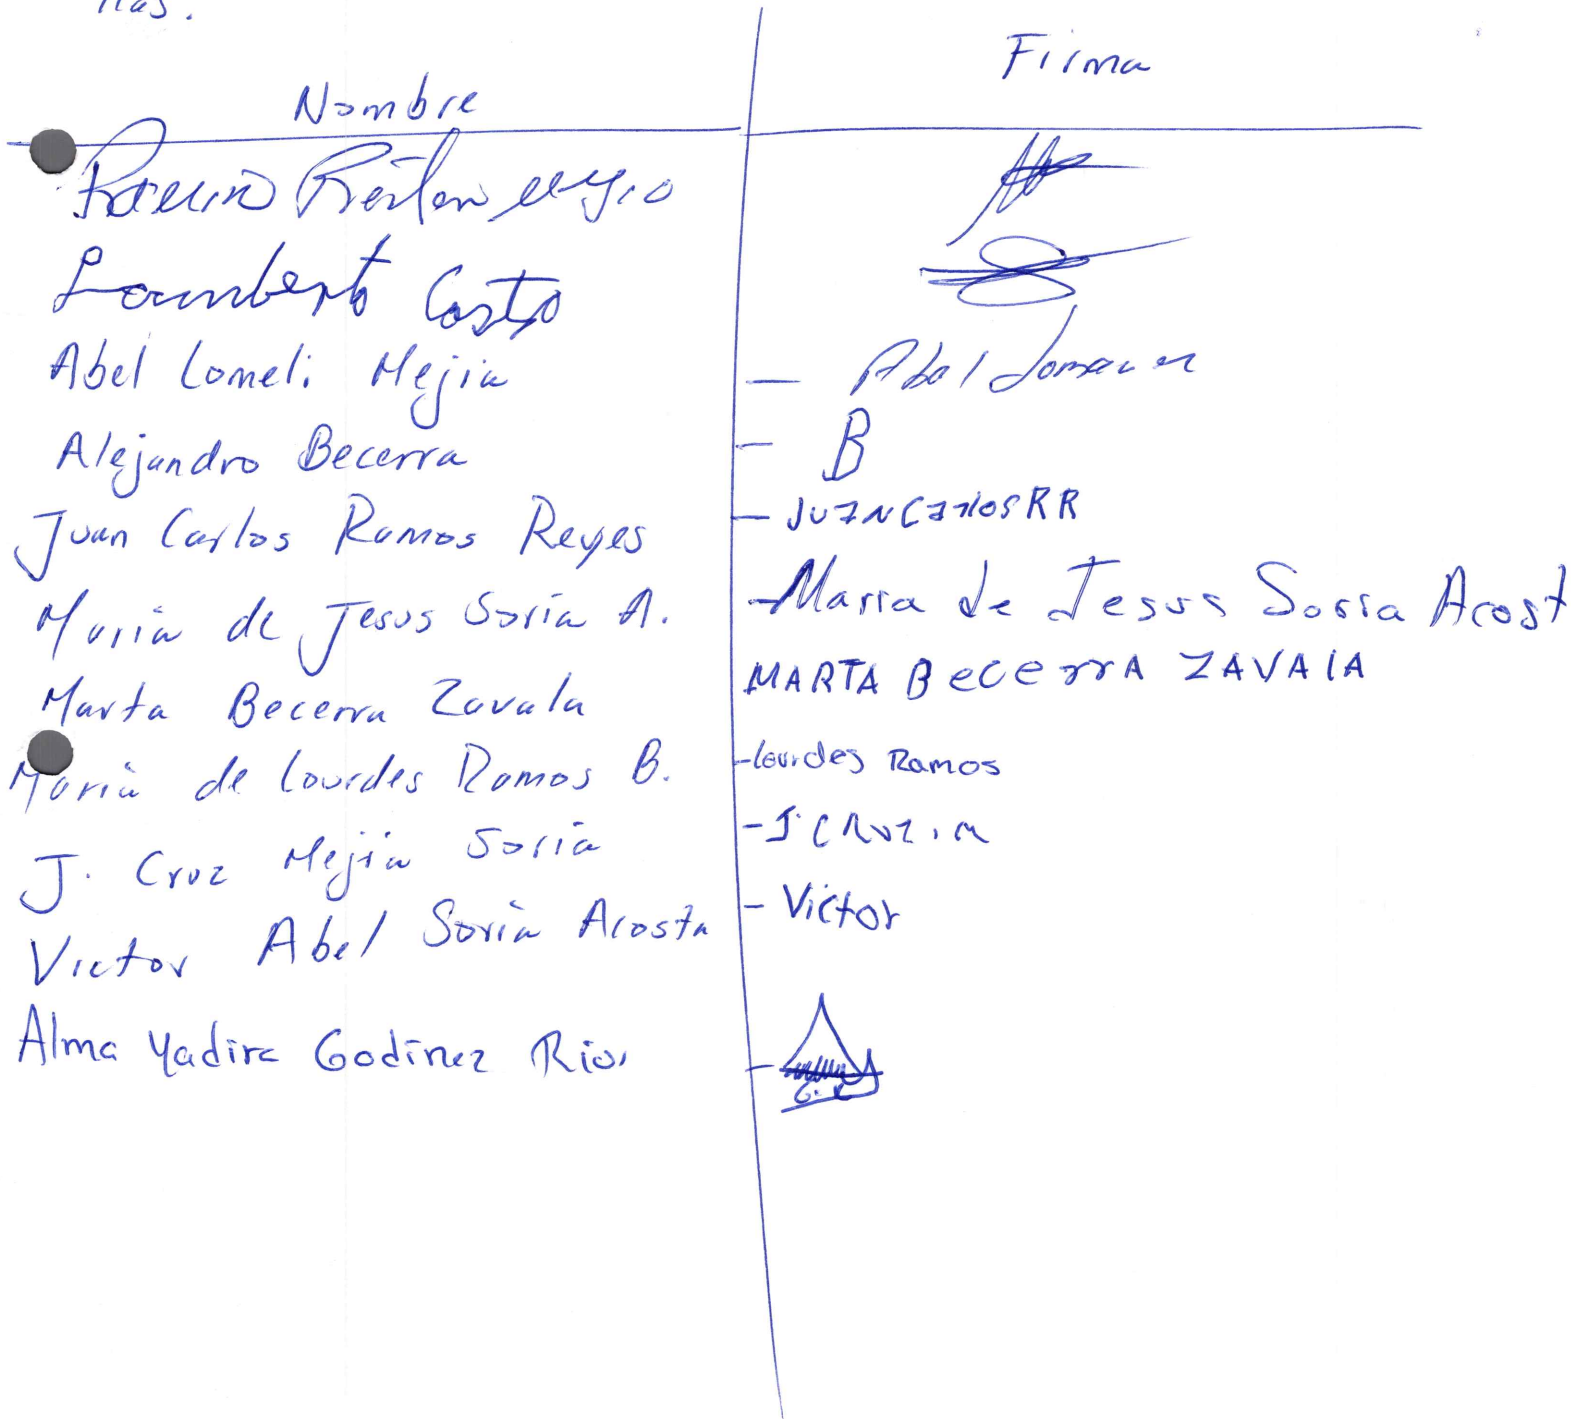 Nombre Firma
Lamberto Castro
Abel Lomeli Mejia
Alejandro Becerra B
Juan Carlos Ramos Reyes JUANCARlOSRR
Maria de Jesus Soria A. Maria de Jesus Soria Acost
Marta Becerra Zavala MARTA BeCerrA ZAVAlA
Maria de Lourdes Ramos B. Lourdes Ramos
J. Cruz Mejia Soria J. CRUZ. M
Victor Abel Soria Acosta Victor
Alma Yadira Godinez Rios